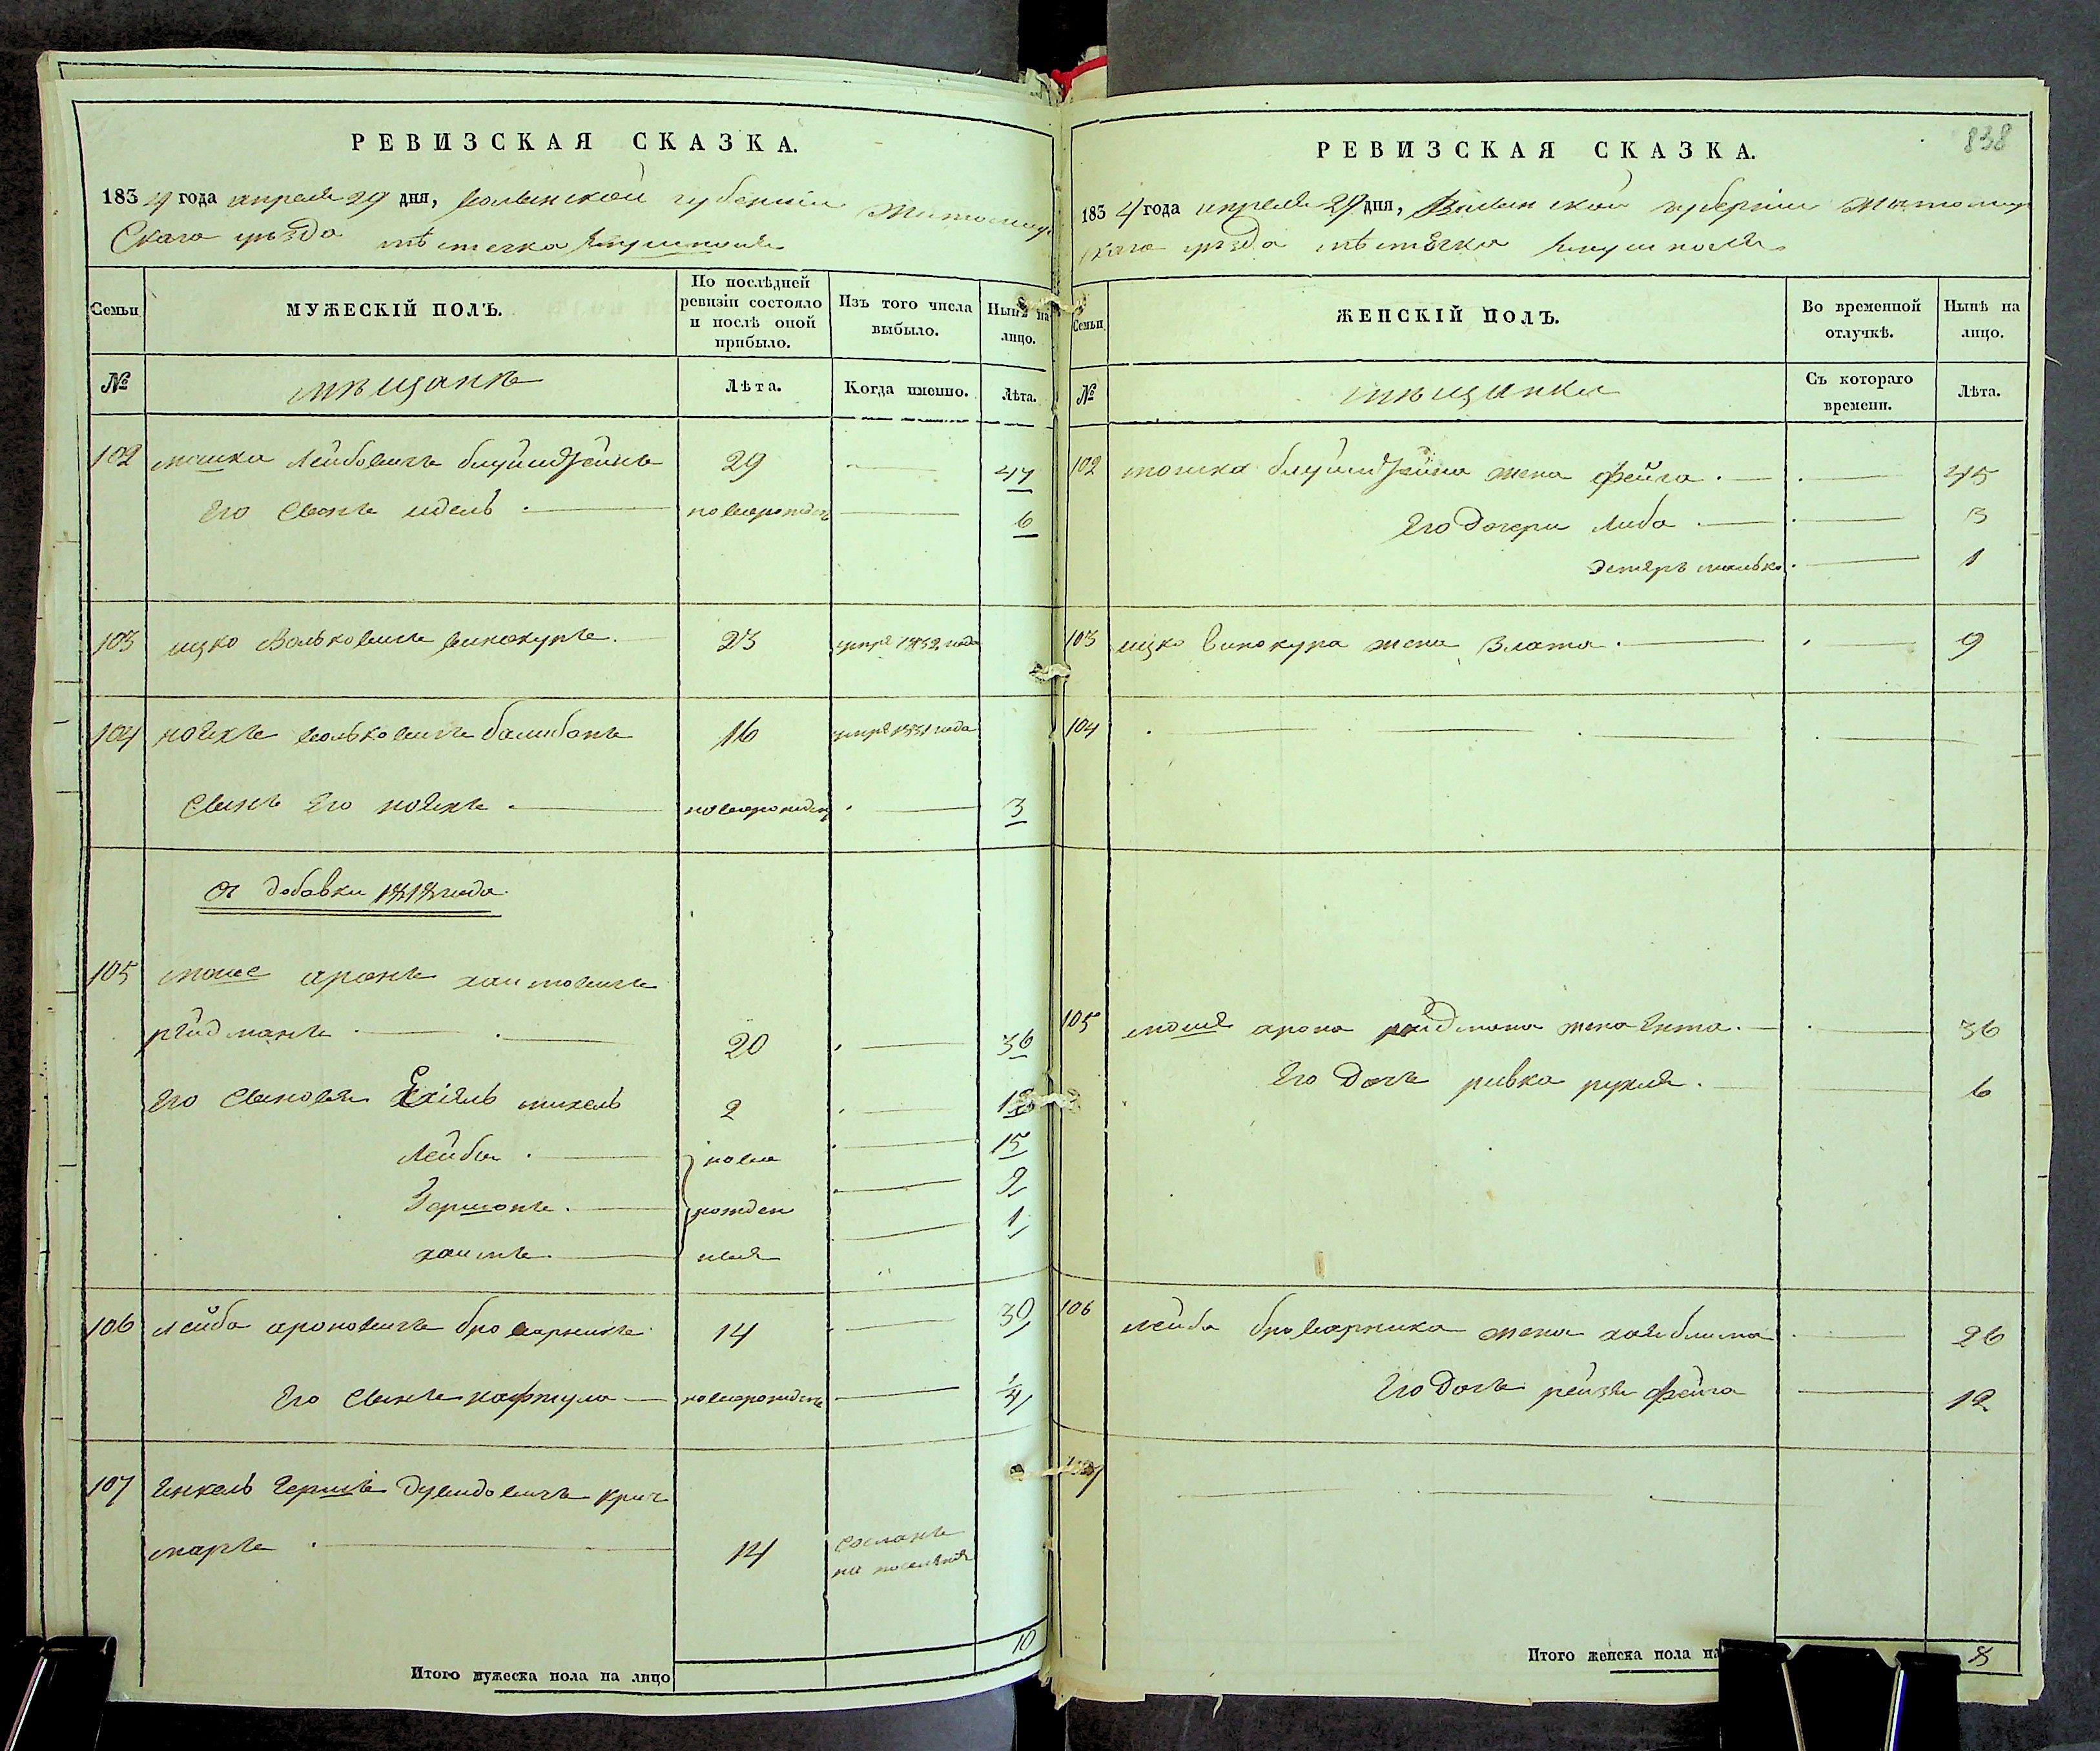 РЕВИЗСКАЯ СКАЗКА.
1834 года апреля 29 дня, волынской губернiи Житомир
Скаго уѣзда мѣстечка
Семьи
МУЖЕСКIЙ ПОЛЪ.
По послѣдней ревизiи состояло и послѣ оной прибыло.
Изъ того числа выбыло.
Нынѣ на лицо.
№
мѣщанѣ
Лѣта.
Когда именно.
Лѣта.
102 мошка Лейбовичъ 29 47
Его Сынъ идель новорожден 6
103 ицко Вольковичъ винокуръ 23 умре 1832 года
104 вольковичъ 16 умре 1831 года
Сынъ Его новорожден 3
Съ добавки 1818 года
105 моше аронъ хаимовичъ
рейдманъ 20 36
Его Сыновья Ехiель михель 2 18
Лейба ново 15
Гершонъ рожден 9
хаимъ ные 1
106 Лейба ароновичъ броварникъ 14 30
Его Сынъ нафтула новорожденъ 1/4
107 Янкель Гершъ Дувидовичъ Крич
маръ 14 Сосланъ
на поселенiя
Итого мужеска пола на лицо 10
838
РЕВИЗСКАЯ СКАЗКА.
1834 года апреля 29 дня, Волынской губернiи Житомир
скаго уѣзда мѣстечка
Семьи
ЖЕНСКIЙ ПОЛЪ.
Во временной отлучкѣ.
Нынѣ на лицо.
№
мѣщанки
Съ котораго времени.
Лѣта.
102 мошка жена фейга 45
Его Дочери Либа 3
Эстеръ малька 1
103 ицко Винокура жена Злата 9
104
105 моше арона рейдмана жена Ента 36
Его Дочь ривка рухля 6
106 лейба броварника жена хая блима 26
Его Дочь рейзя фейга 12
107
Итого женска пола на 8